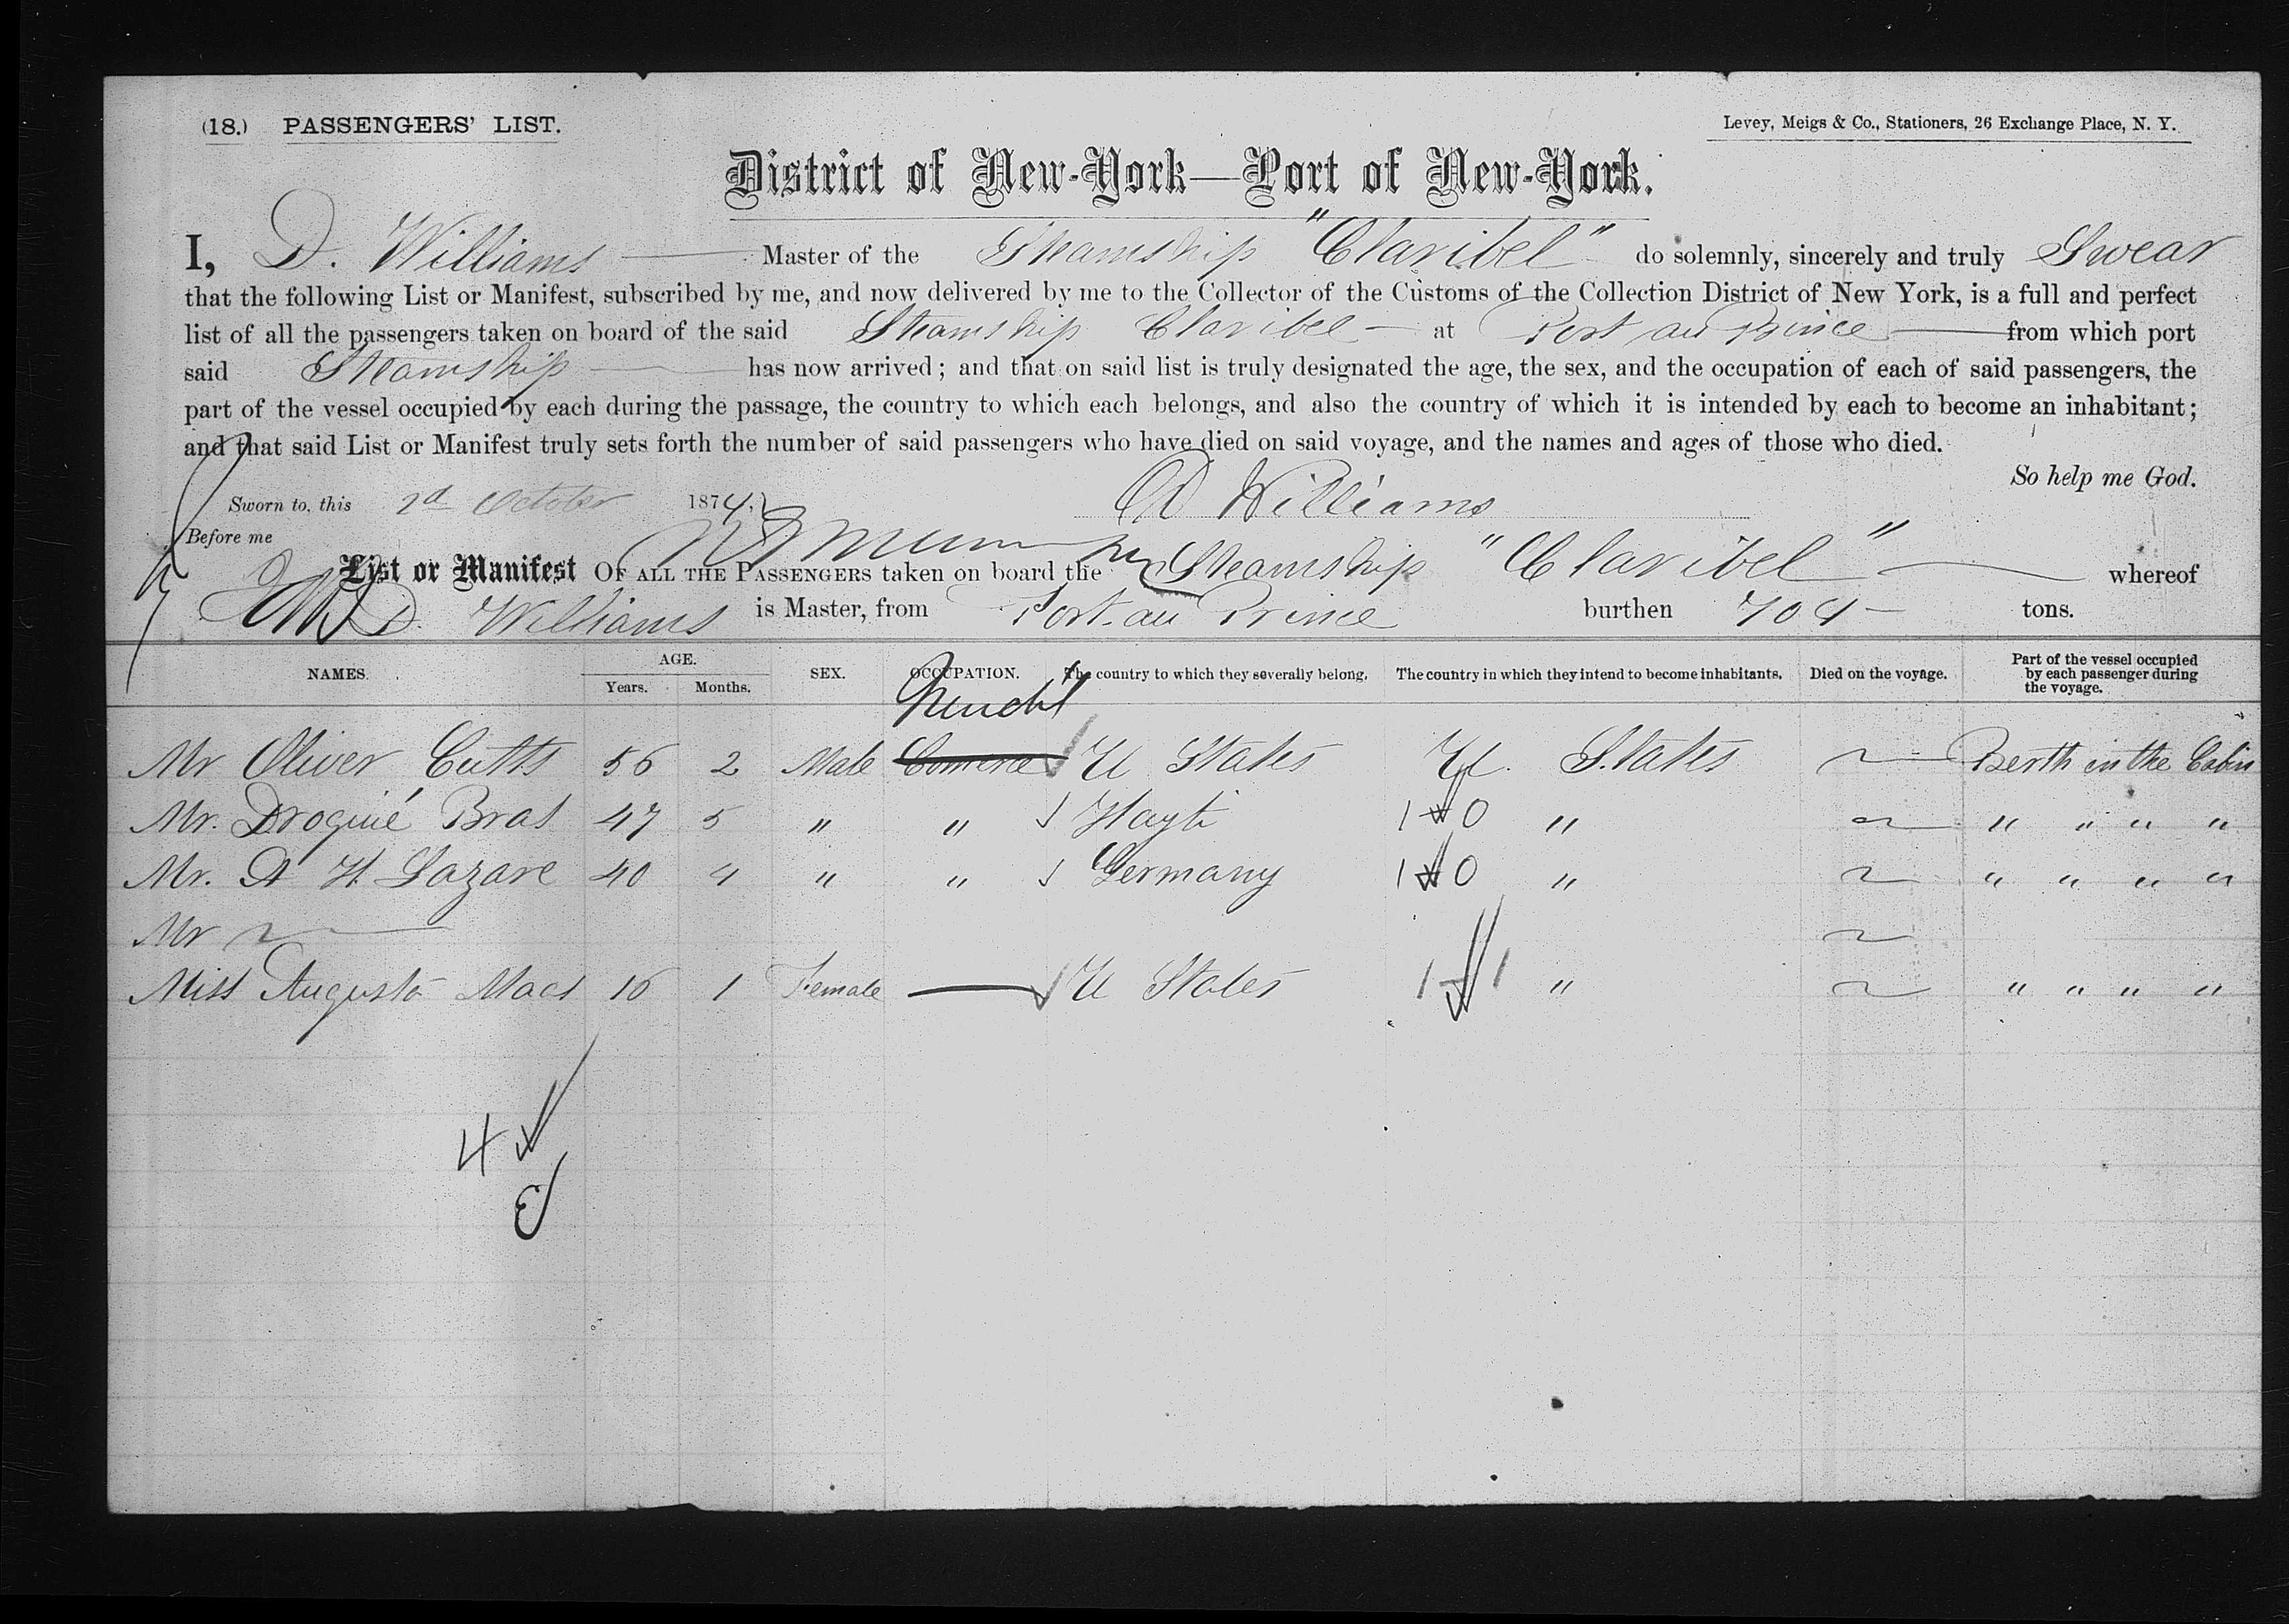 (18.) PASSENGERS' LIST.
Levey, Meigs & Co., Stationers, 26 Exchange Place, N. Y.
District of New-York—Port of New-York.
I, D. Williams Master of the Steamship "Claribel" do solemnly, sincerely and truly Swear
that the following List or Manifest, subscribed by me, and now delivered by me to the Collector of the Customs of the Collection District of New York, is a full and perfect
list of all the passengers taken on board of the said Steamship Claribel — at Port au Prince from which port
said Steamship has now arrived; and that on said list is truly designated the age, the sex, and the occupation of each of said passengers, the
part of the vessel occupied by each during the passage, the country to which each belongs, and also the country of which it is intended by each to become an inhabitant;
and that said List or Manifest truly sets forth the number of said passengers who have died on said voyage, and the names and ages of those who died.
So help me God.
Sworn to, this 2d October 1874, D Williams
Before me
List or Manifest OF ALL THE PASSENGERS taken on board the Steamship "Claribel" whereof
D. Williams is Master, from Port-au Prince burthen 704 — tons.
NAMES. AGE. Years. Months. SEX. OCCUPATION. The country to which they severally belong. The country in which they intend to become inhabitants. Died on the voyage. Part of the vessel occupied by each passenger during the voyage.
Mr Oliver Cutts 56 2 Male U States U. States Berth in the Cabin
Mr. Droguié Bras 47 5 " " Hayti 1 0 " " " " "
Mr. A H Lazare 40 4 " " Germany 1 0 " " " " "
Mr
Miss Augusta 16 1 Female — U States 1 1 " " " " "
4